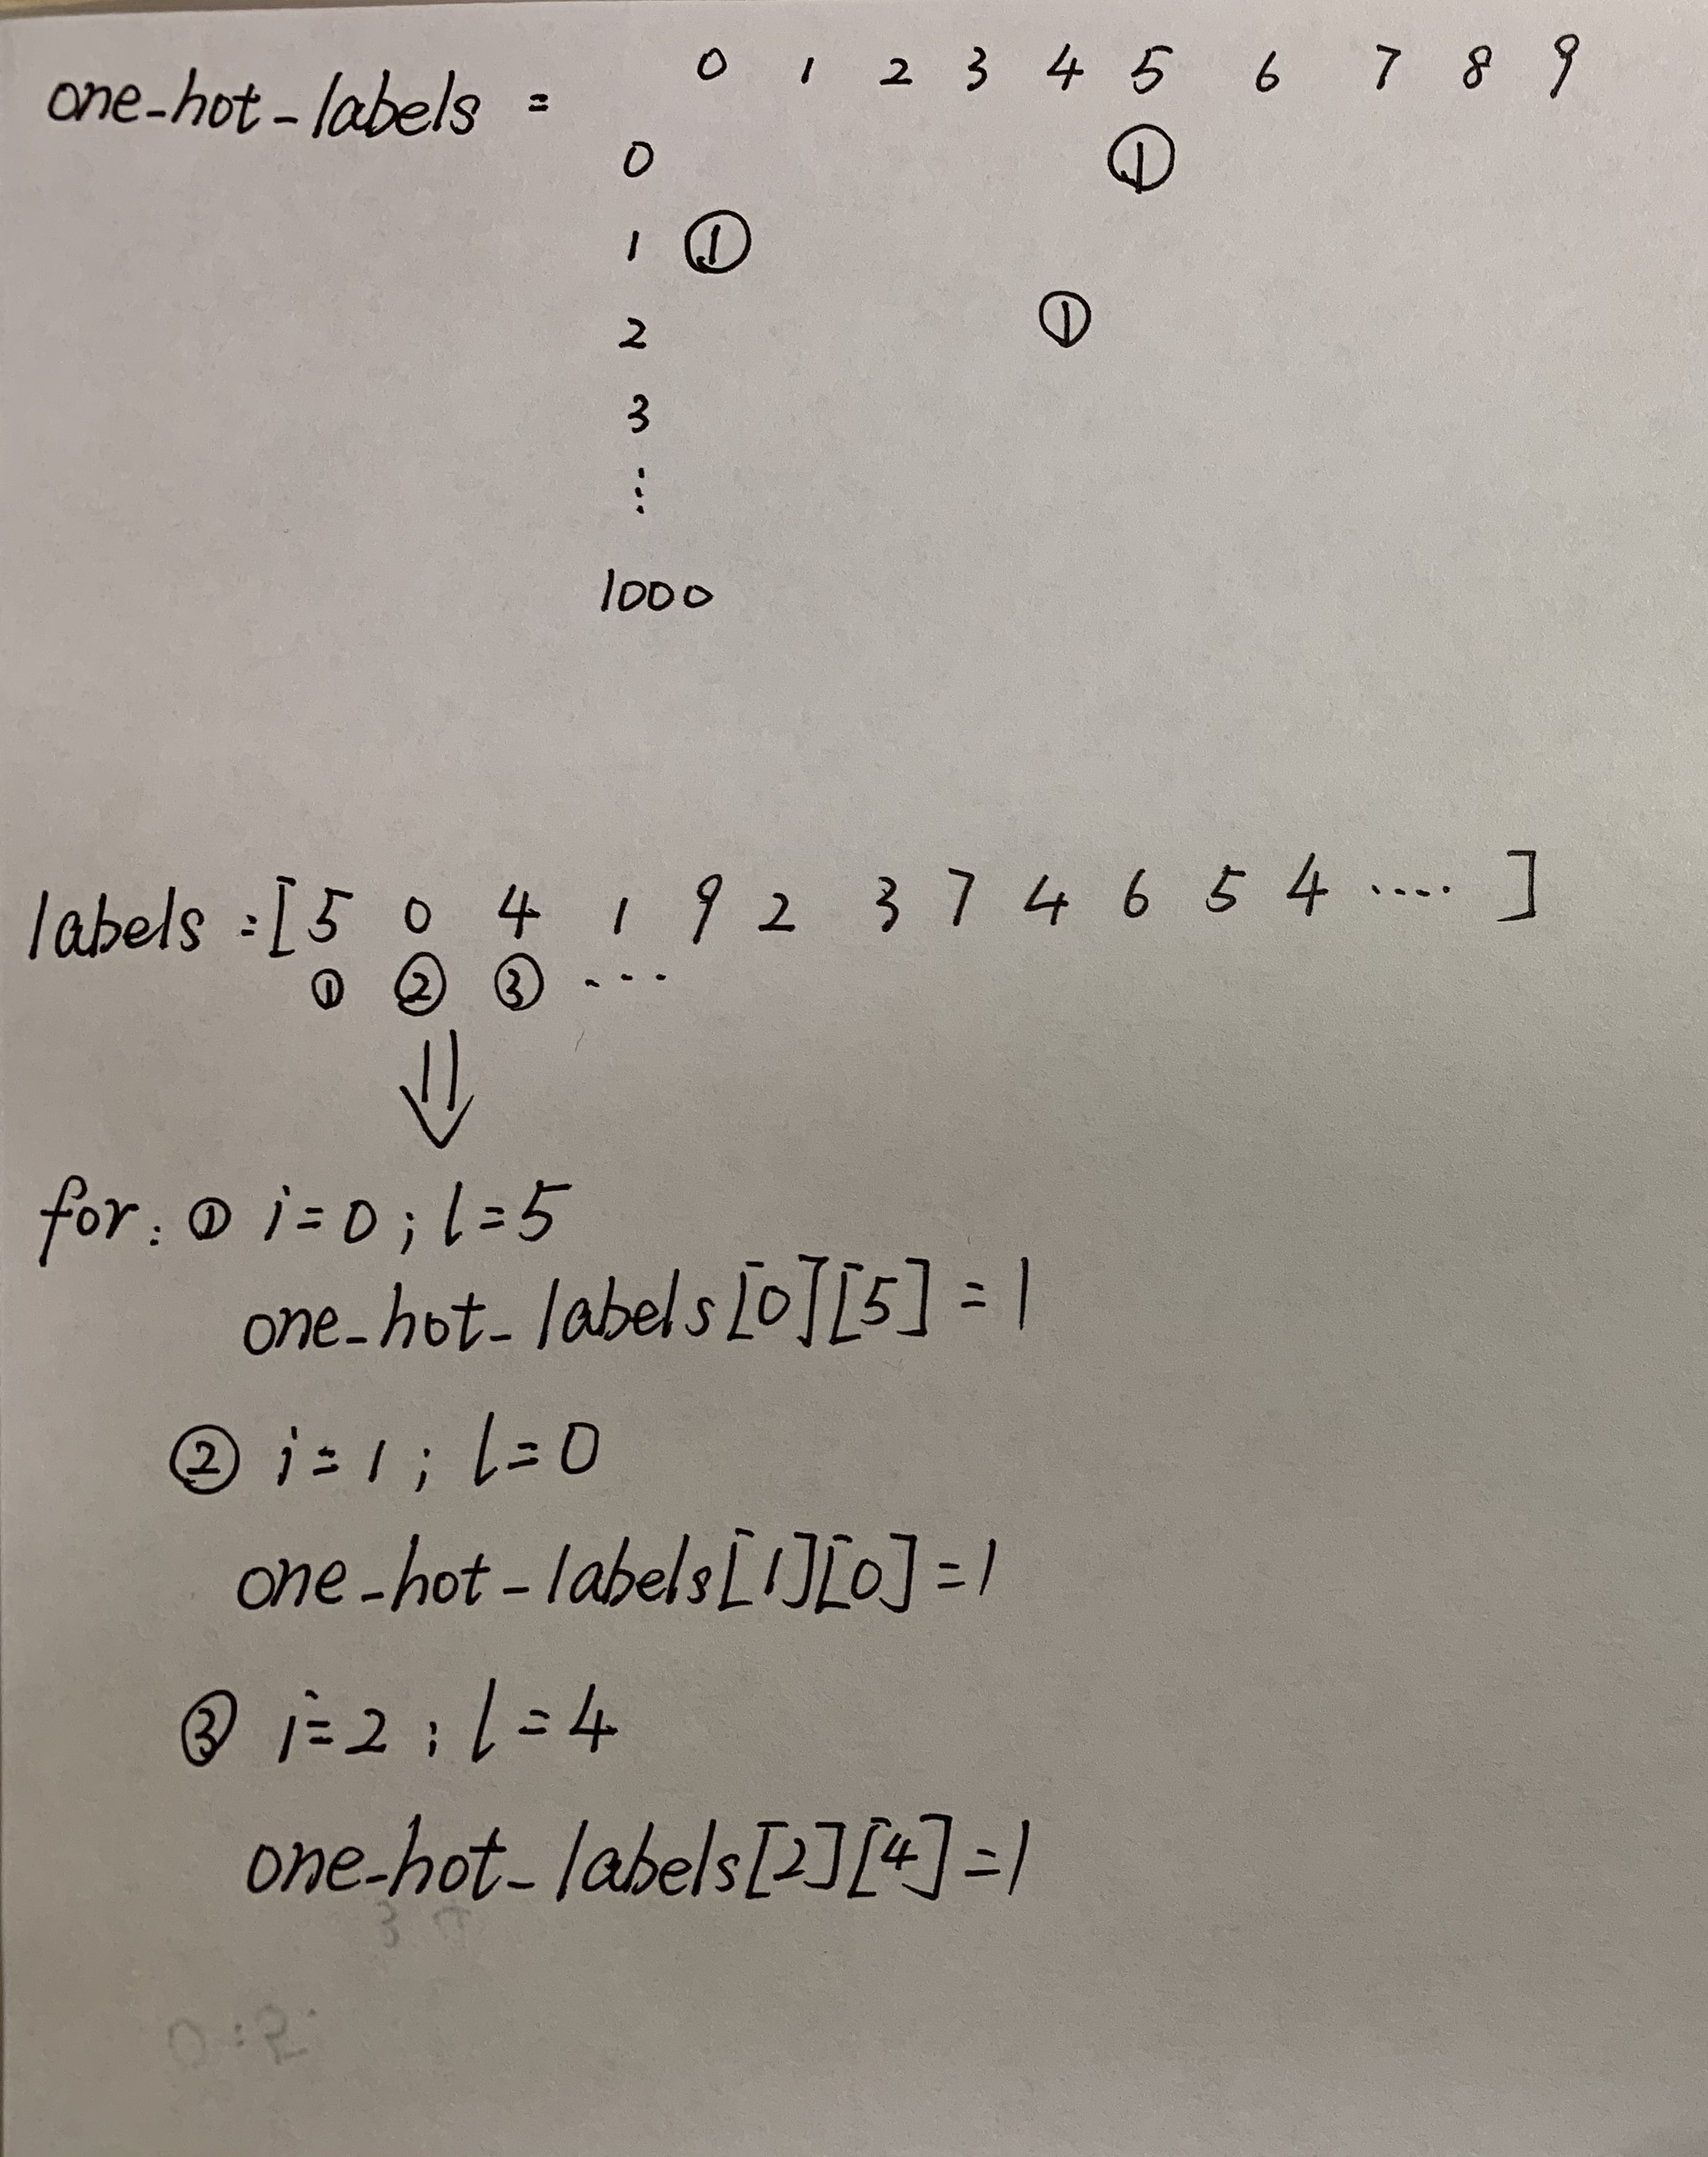 one-hot-labels = 0 1 2 3 4 5 6 7 8 9
0 ①
1 ①
2 ①
3
⋮
1000
labels = [5 0 4 1 9 2 3 7 4 6 5 4 ····]
① ② ③ ···
⇓
for: ① i=0; l=5
one-hot-labels[0][5]=1
② i=1; l=0
one-hot-labels[1][0]=1
③ i=2; l=4
one-hot-labels[2][4]=1